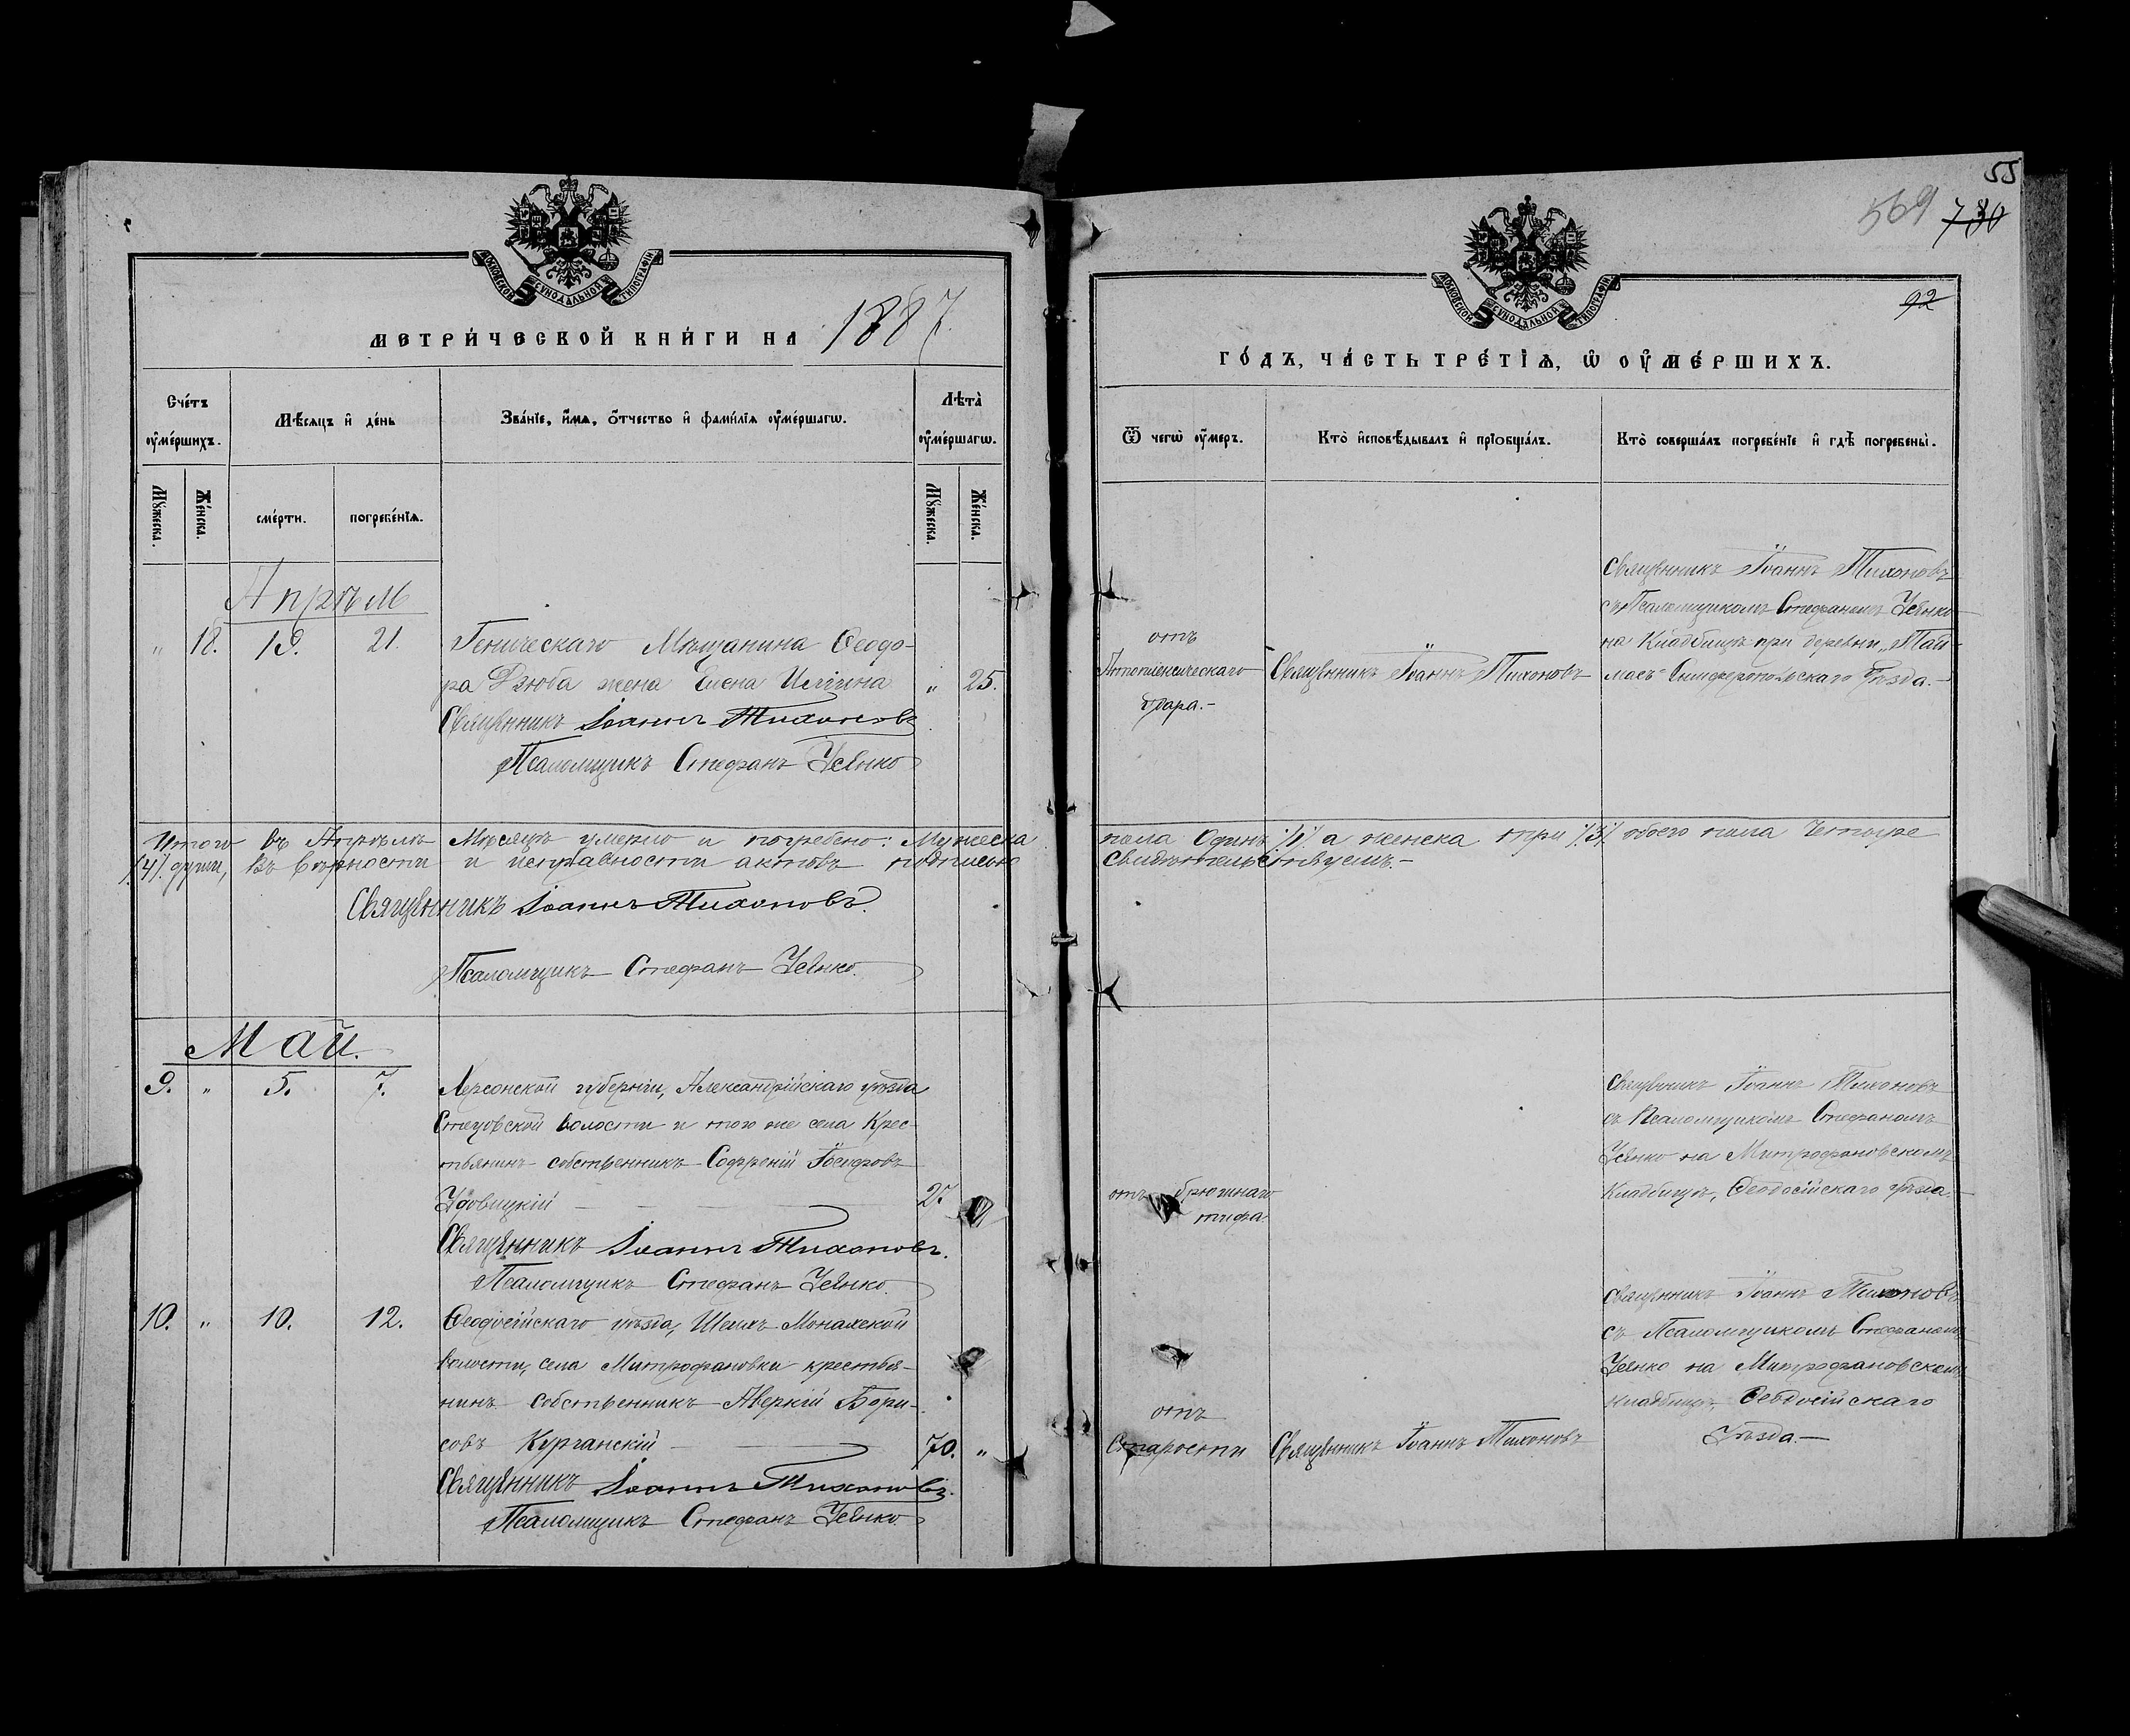 55
569 730
92
МОСКОВСКОЙ СУНОДАЛЬНОЙ ТИПОГРАФІИ
МОСКОВСКОЙ СУНОДАЛЬНОЙ ТИПОГРАФІИ
МЕТРИ́ЧЕСКОЙ КНИ́ГИ НА 1887.
Сче́тъ ᲂу҆ме́ршихъ.
Мѣ́сяцъ и҆ де́нь
Зва́нїе, и҆́мѧ, ѻ҆́тчество и҆ фами́лїѧ ᲂу҆ме́ршагѡ.
Лѣта̀ ᲂу҆ме́ршагѡ.
Мꙋ́жеска. Же́нска. сме́рти. погребе́нїѧ. Мꙋ́жеска. Же́нска.
Апрѣль
" 18. 19. 21. Геническаго Мѣщанина Ѳеодо-
ра Дзюба жена Елена Ильина " 25.
Священникъ Іоаннъ Тихоновъ
Псаломщикъ Стефанъ
Итого въ Апрѣлѣ Мѣсяцѣ умерло и погребено: Мужеска
/4/ души, Въ вѣрности и исправности актовъ подписью
Священникъ Іоаннъ Тихоновъ.
Псаломщикъ Стефанъ
Май.
9. " 5. 7. Херсонской губерніи, Александрійскаго уѣзда
волости и того же села Крес-
тьянинъ собственникъ Софроній Іосифовъ
Удовицкій 27
Священникъ Іоаннъ Тихоновъ.
Псаломщикъ Стефанъ
10. " 10. 12. Ѳеодосійскаго уѣзда, Шейхъ Монахской
волости, села Митрофановки крестья-
нинъ собственникъ Аверкій Бори-
совъ Курганскій 70. "
Священникъ Іоаннъ Тихоновъ.
Псаломщикъ Стефанъ
ГО́ДЪ, ЧА́СТЬ ТРЕ́ТЇѦ, Ѡ҆ ОУ҆МЕ́РШИХЪ.
Ѿ чегѡ̀ ᲂу҆́меръ.
Кто̀ и҆сповѣ́дывалъ и҆ прїѻбща́лъ.
Кто̀ соверша́лъ погребе́нїе и҆ гдѣ̀ погребены̀.
отъ
Апоплексическаго
удара.-
Священникъ Іоаннъ Тихоновъ
Священникъ Іоаннъ Тихоновъ
съ Псаломщикомъ Стефаномъ
на Кладбищѣ при деревни „Тай-
масъ“ Симферопольскаго Уѣзда.-
пола Одинъ /1/ а женска три /3/ обоего пола Четыре
свидѣтельствуемъ.-
отъ брюшнаго
тифа.
Священникъ Іоаннъ Тихоновъ
съ Псаломщикомъ Стефаномъ
на Митрофановскомъ
Кладбищѣ, Ѳеодосійскаго уѣзда.-
отъ
Старости
Священникъ Іоаннъ Тихоновъ
Священникъ Іоаннъ Тихоновъ
съ Псаломщикомъ Стефаномъ
на Митрофановскомъ
кладбищѣ, Ѳеодосійскаго
Уѣзда.-